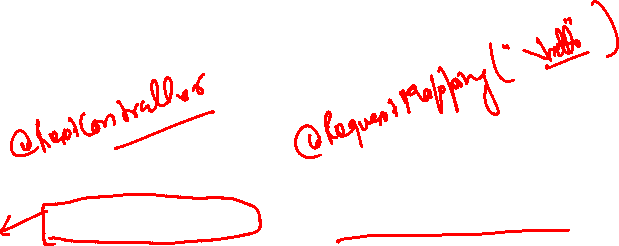 @RestController
@RequestMapping("hello")